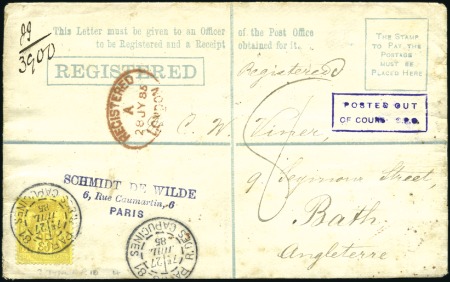 gg
3900
This Letter must be given to an Officer of the Post Office
to be Registered and a Receipt obtained for it.
THE STAMP
TO PAY THE
POSTAGE
MUST BE
PLACED HERE
REGISTERED
Registered
REGISTERED
A
28 JY 85
LONDON
POSTED OUT
OF COURSE
C. W. Viner,
SCHMIDT DE WILDE
6, Rue Caumartin, 6
PARIS
9 Seymour Street,
Bath,
Angleterre
PARIS 81
27
85
R. DES CAPUCINES
PARIS 81
7E 27
JUIL
85
R. DES CAPUCINES